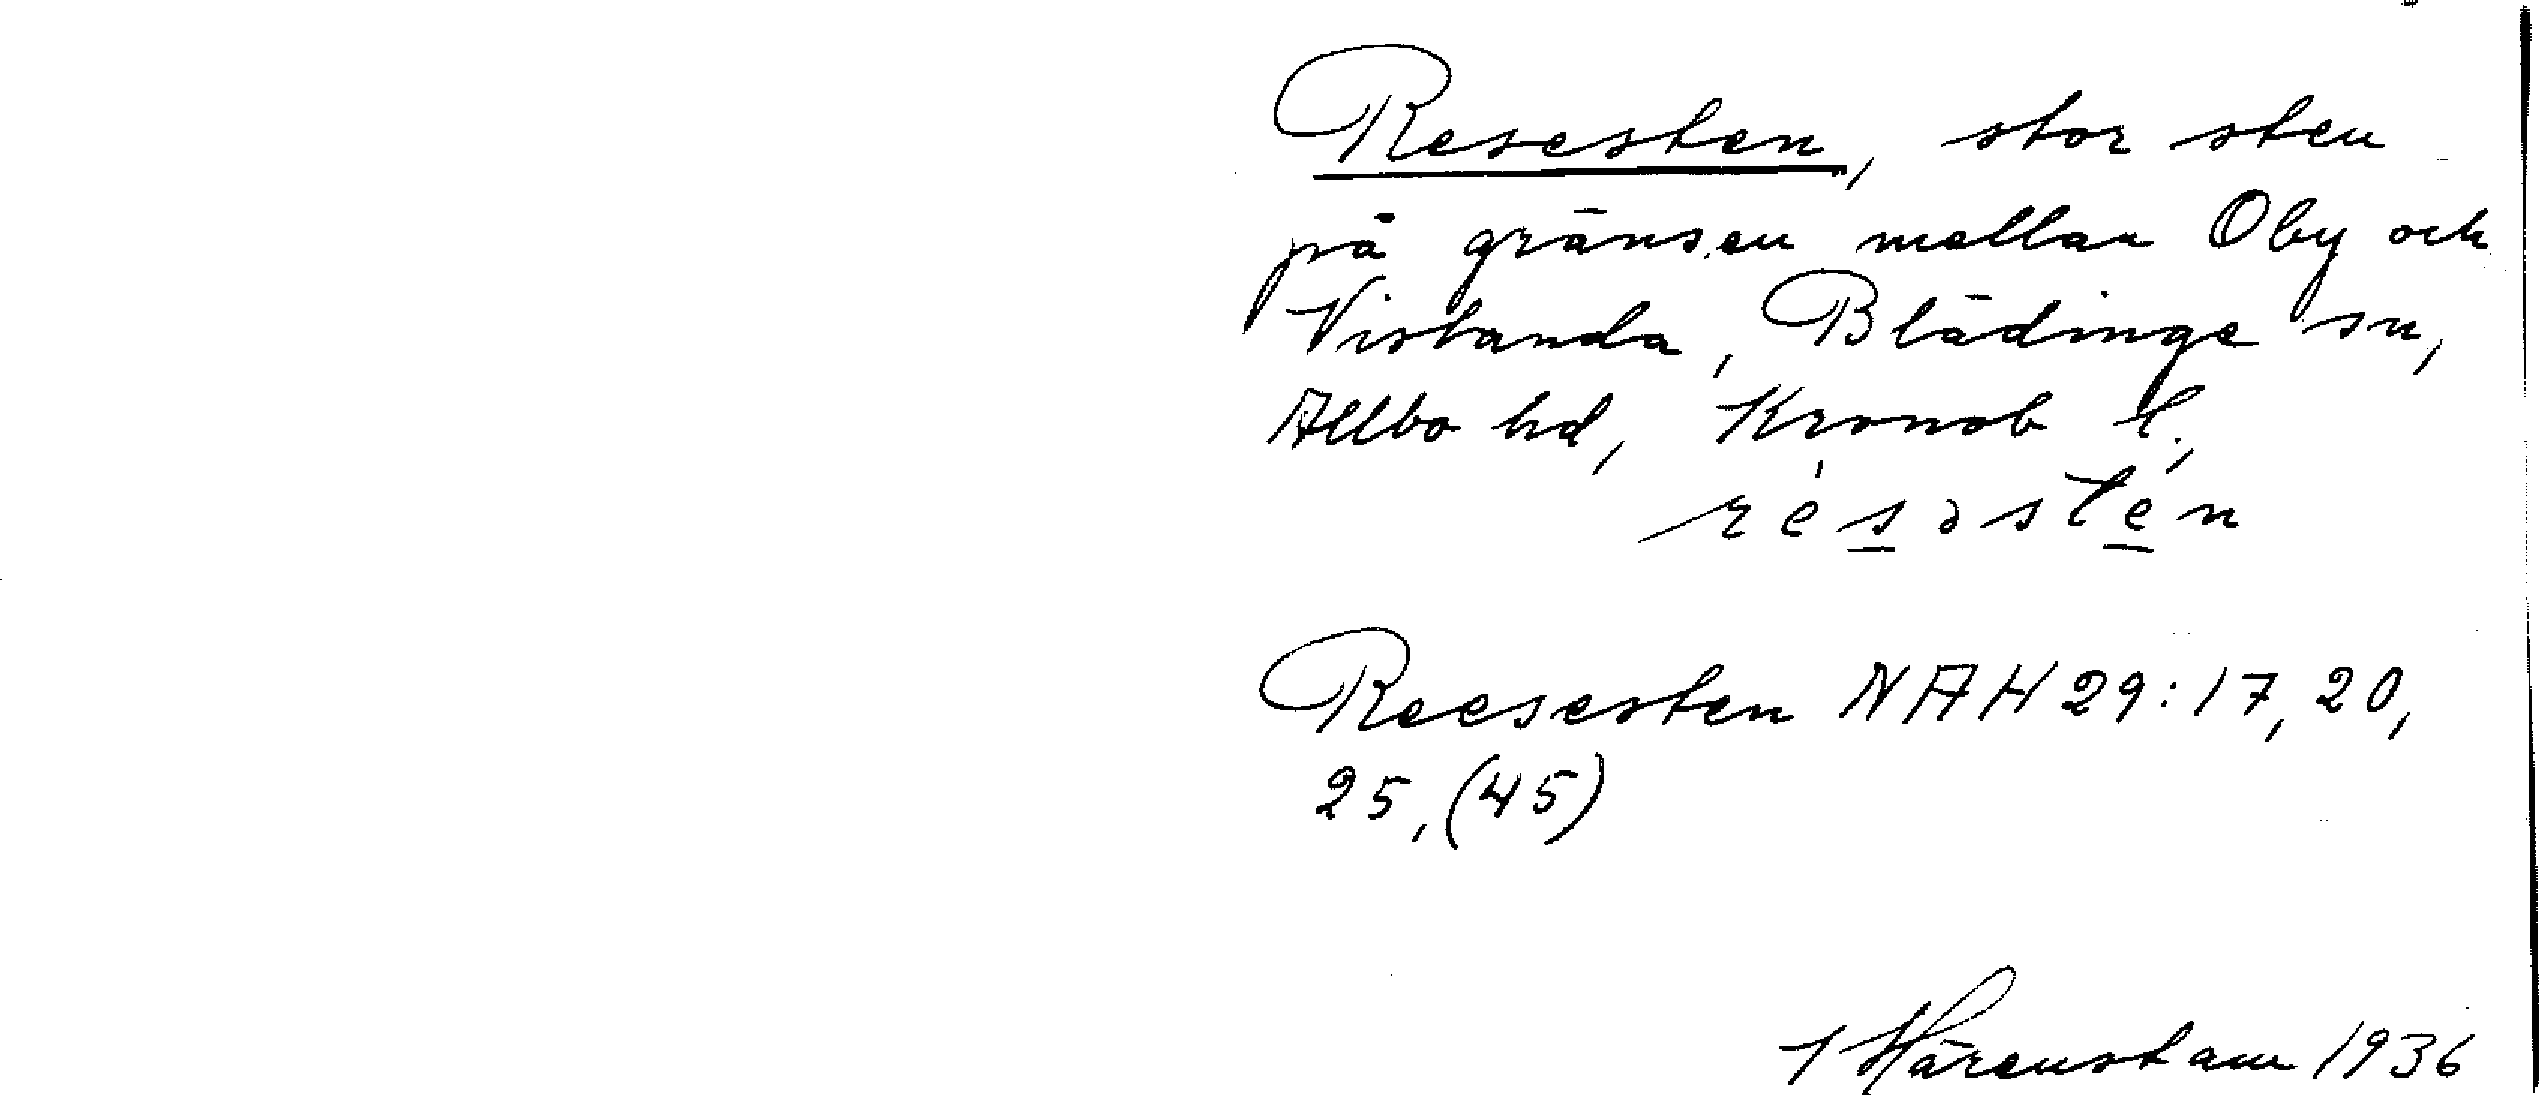 Resesten, stor sten
på gränsen mellan Oby och
Vistanda, Blädinge sn,
Allbo hd, Kronob l.,
résəstèn
Reesesten NAH 29:17, 20,
25, (45)
J Härenstam 1936